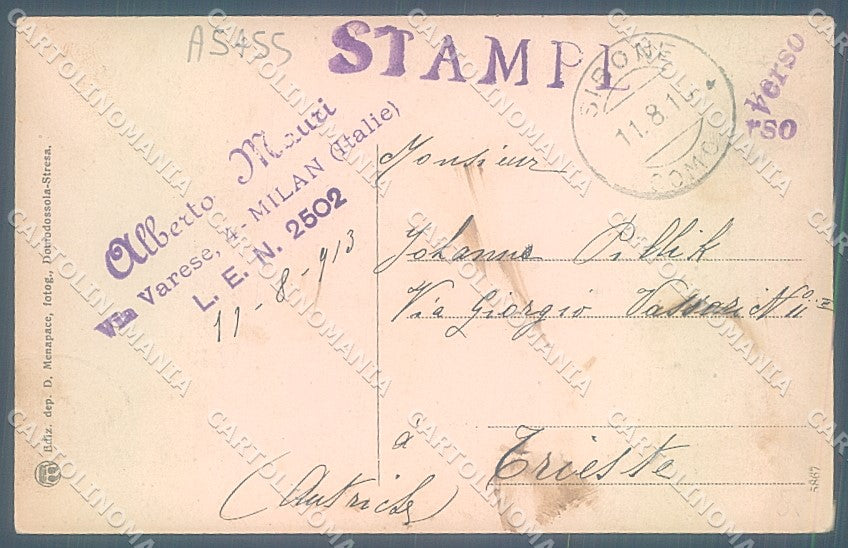 A5455
STAMPE
Verso
rso
SIRONE
11.8.13
COMO
Alberto Mauri
Via Varese, 4 - MILAN (Italie)
L. E. N. 2502
11-8-913
Monsieur
Johanne Piblik
Via Giorgio Vassari N 11
à
Trieste
(Autriche)
Ediz. dep. D. Menapace, fotog., Domodossola-Stresa.
5867
CARTOLINOMANIA